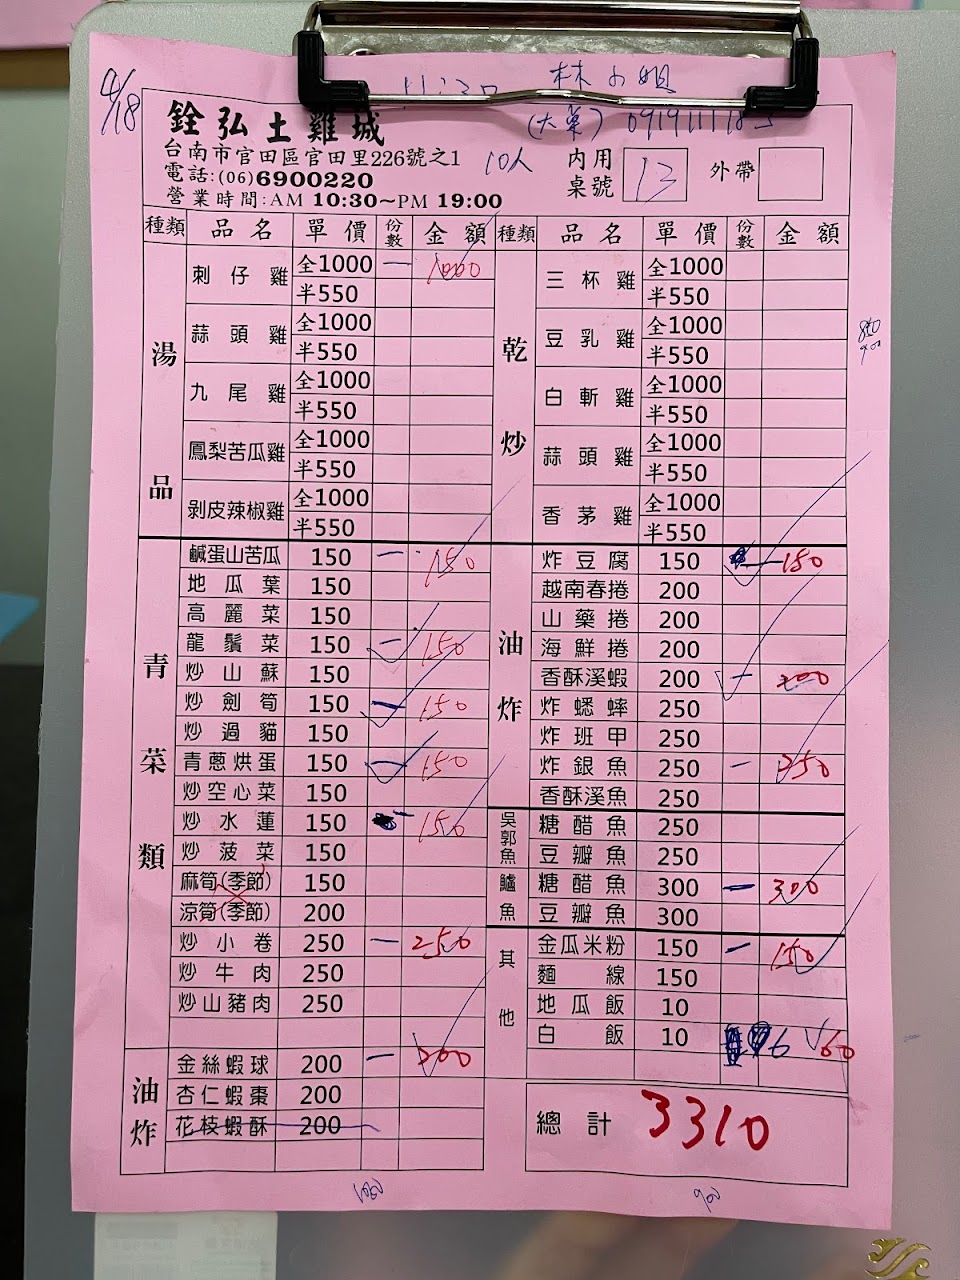 4/18
11:30 林小姐
銓弘土雞城 (大菜)
台南市官田區官田里226號之1
電話:(06)6900220
營業時間:AM 10:30~PM 19:00
10人
內用桌號 13
外帶
種類 品名 單價 份數 金額
湯品
刺仔雞 全1000 一 1000
半550
蒜頭雞 全1000
半550
九尾雞 全1000
半550
鳳梨苦瓜雞 全1000
半550
剝皮辣椒雞 全1000
半550
青菜類
鹹蛋山苦瓜 150 一 150
地瓜葉 150
高麗菜 150
龍鬚菜 150 一 150
炒山蘇 150
炒劍筍 150 一 150
炒過貓 150
青蔥烘蛋 150 一 150
炒空心菜 150
炒水蓮 150 一 150
炒菠菜 150
麻筍(季節) 150
涼筍(季節) 200
炒小卷 250 一 250
炒牛肉 250
炒山豬肉 250
油炸
金絲蝦球 200 一 200
杏仁蝦棗 200
花枝蝦酥 200
種類 品名 單價 份數 金額
乾炒
三杯雞 全1000
半550
豆乳雞 全1000
半550
白斬雞 全1000
半550
蒜頭雞 全1000
半550
香茅雞 全1000
半550
油炸
炸豆腐 150 一 150
越南春捲 200
山藥捲 200
海鮮捲 200
香酥溪蝦 200 一 200
炸蟋蟀 250
炸班甲 250
炸銀魚 250 一 250
香酥溪魚 250
吳郭魚
糖醋魚 250
豆瓣魚 250
鱸魚
糖醋魚 300 一 300
豆瓣魚 300
其他
金瓜米粉 150 一 150
麵線 150
地瓜飯 10
白飯 10 6 60
總計 3310
850
900
1050
900